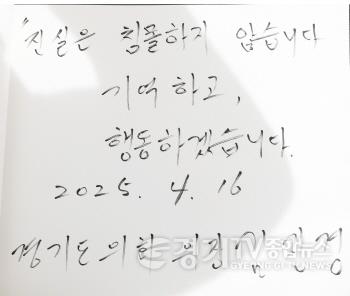 "진실은 침몰하지 않습니다
기억하고,
행동하겠습니다.
2025. 4. 16
경기도의회 의장 김진경
경기TV종합뉴스
GYEONG GI TV NEWS